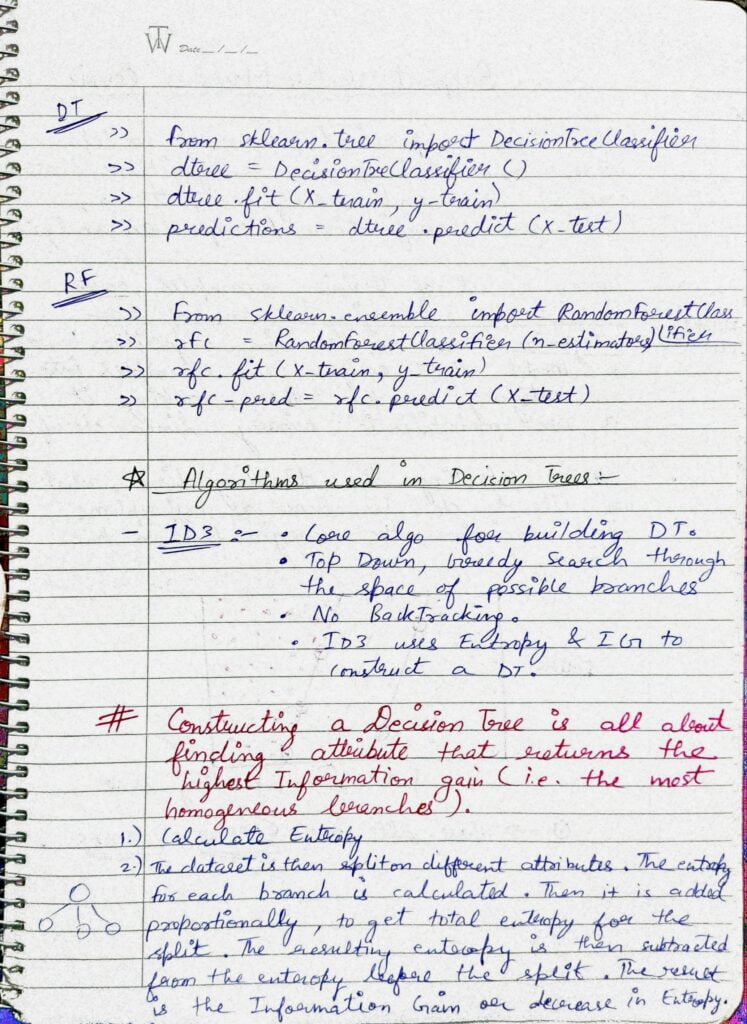 TW Date__/__/__
DT
>> from sklearn.tree import DecisionTreeClassifier
>> dtree = DecisionTreeClassifier ()
>> dtree.fit (X_train, y_train)
>> predictions = dtree.predict (X_test)
RF
>> From sklearn.ensemble import RandomForestClass
>> rfc = RandomForestClassifier (n_estimators) ifier
>> rfc.fit (X_train, y_train)
>> rfc_pred = rfc.predict (X_test)
☆ Algorithms used in Decision Trees:-
- ID3 :- • Core algo for building DT.
• Top Down, Greedy Search through
the space of possible branches
• No BackTracking.
• ID3 uses Entropy & IG to
construct a DT.
# Constructing a Decision Tree is all about
finding attribute that returns the
highest Information gain (i.e. the most
homogeneous branches).
1.) Calculate Entropy
2.) The dataset is then split on different attributes. The entropy
for each branch is calculated. Then it is added
proportionally, to get total entropy for the
split. The resulting entropy is then subtracted
from the entropy before the split. The result
is the Information Gain or decrease in Entropy.